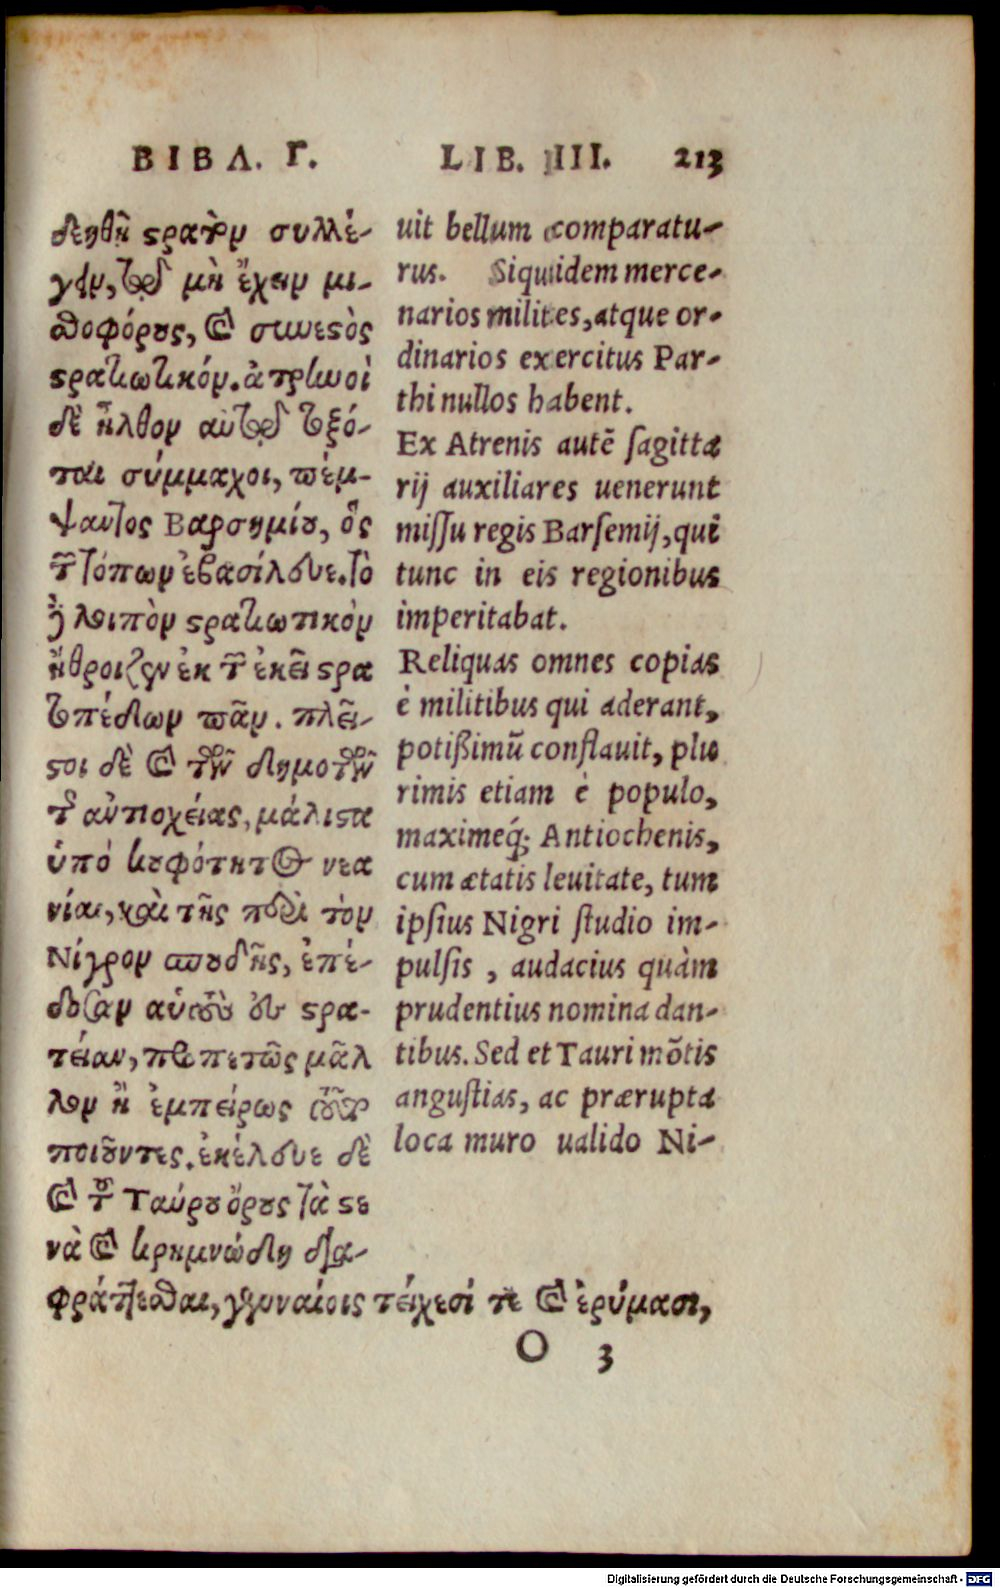 ΒΙΒΛ. Γ.
δεηθῇ στρατὸν συλλέ-
γειν, τῷ δὲ μὴ ἔχειν μι-
σθοφόρους, καὶ συνεστὸς
στρατιωτικόν. ἀτρηνοὶ
δὲ ἦλθον αὐτῷ τοξό-
ται σύμμαχοι, πέμ-
ψαντος Βαρσημίου, ὃς
τῶν τόπων ἐβασίλευε. τὸ
δὲ λοιπὸν στρατιωτικὸν
ἤθροιζεν ἐκ τῶν ἐκεῖ στρα
τοπέδων πᾶν. πλεῖ-
στοι δὲ καὶ τῶν δημοτῶν
τῆς ἀντιοχείας, μάλιστα
ὑπὸ κουφότητος νεα
νίαι, καὶ τῆς περὶ τὸν
Νίγρον σπουδῆς, ἐπέ-
δοσαν αὑτοὺς εἰς στρα-
τείαν, προπετῶς μᾶλ
λον ἢ ἐμπείρως τοῦτο
ποιοῦντες. ἐκέλευε δὲ
καὶ τοῦ Ταύρου ὄρους τὰ στε
νὰ καὶ κρημνώδη δια-
φράττεσθαι, γενναίοις τείχεσί τε καὶ ἐρύμασι,
LIB. III. 213
uit bellum comparatu-
rus. Siquidem merce-
narios milites, atque or-
dinarios exercitus Par-
thi nullos habent.
Ex Atrenis autẽ ſagitta
rij auxiliares uenerunt
miſſu regis Barſemij, qui
tunc in eis regionibus
imperitabat.
Reliquas omnes copias
è militibus qui aderant,
potißimũ conflauit, plu
rimis etiam è populo,
maximeq́; Antiochenis,
cum ætatis leuitate, tum
ipſius Nigri ſtudio im-
pulſis, audacius quàm
prudentius nomina dan-
tibus. Sed et Tauri mõtis
anguſtias, ac prærupta
loca muro ualido Ni-
O 3
Digitalisierung gefördert durch die Deutsche Forschungsgemeinschaft - DFG